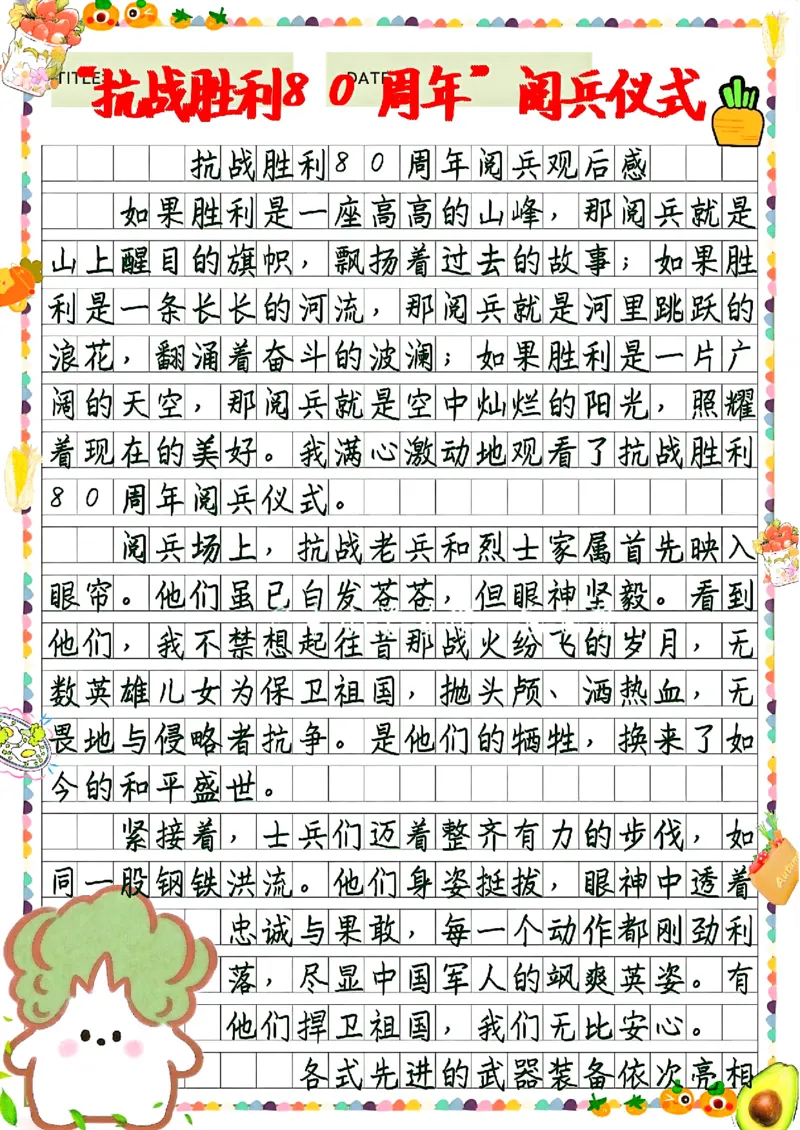 TITLE: DATE:
“抗战胜利80周年”阅兵仪式
抗战胜利80周年阅兵观后感
如果胜利是一座高高的山峰，那阅兵就是
山上醒目的旗帜，飘扬着过去的故事；如果胜
利是一条长长的河流，那阅兵就是河里跳跃的
浪花，翻涌着奋斗的波澜；如果胜利是一片广
阔的天空，那阅兵就是空中灿烂的阳光，照耀
着现在的美好。我满心激动地观看了抗战胜利
80周年阅兵仪式。
阅兵场上，抗战老兵和烈士家属首先映入
眼帘。他们虽已白发苍苍，但眼神坚毅。看到
他们，我不禁想起往昔那战火纷飞的岁月，无
数英雄儿女为保卫祖国，抛头颅、洒热血，无
畏地与侵略者抗争。是他们的牺牲，换来了如
今的和平盛世。
紧接着，士兵们迈着整齐有力的步伐，如
同一股钢铁洪流。他们身姿挺拔，眼神中透着
忠诚与果敢，每一个动作都刚劲利
落，尽显中国军人的飒爽英姿。有
他们捍卫祖国，我们无比安心。
各式先进的武器装备依次亮相